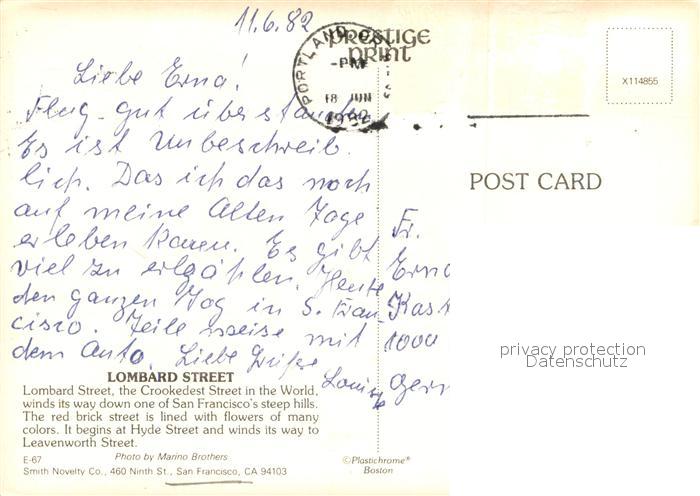 11.6.82
PORTLAND
-PM-
18 JUN
1982
prestige
print
X114855
Liebe Erna!
Flug-gut überstanden
Es ist Unbeschreib
lich. Das ich das noch
auf meine Alten Tage
erleben kann. Es gibt
viel zu erzählen. Heute
den ganzen Tag in S. Fran-
cisco. Teile weise mit
dem Auto. Liebe Grüße
Louise
POST CARD
Fr.
Erna
Kast
1000
Germ
privacy protection
Datenschutz
LOMBARD STREET
Lombard Street, the Crookedest Street in the World,
winds its way down one of San Francisco's steep hills.
The red brick street is lined with flowers of many
colors. It begins at Hyde Street and winds its way to
Leavenworth Street.
E-67 Photo by Marino Brothers
Smith Novelty Co., 460 Ninth St., San Francisco, CA 94103
©Plastichrome®
Boston